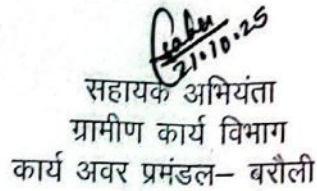 21.10.25
सहायक अभियंता
ग्रामीण कार्य विभाग
कार्य अवर प्रमंडल– बरौली